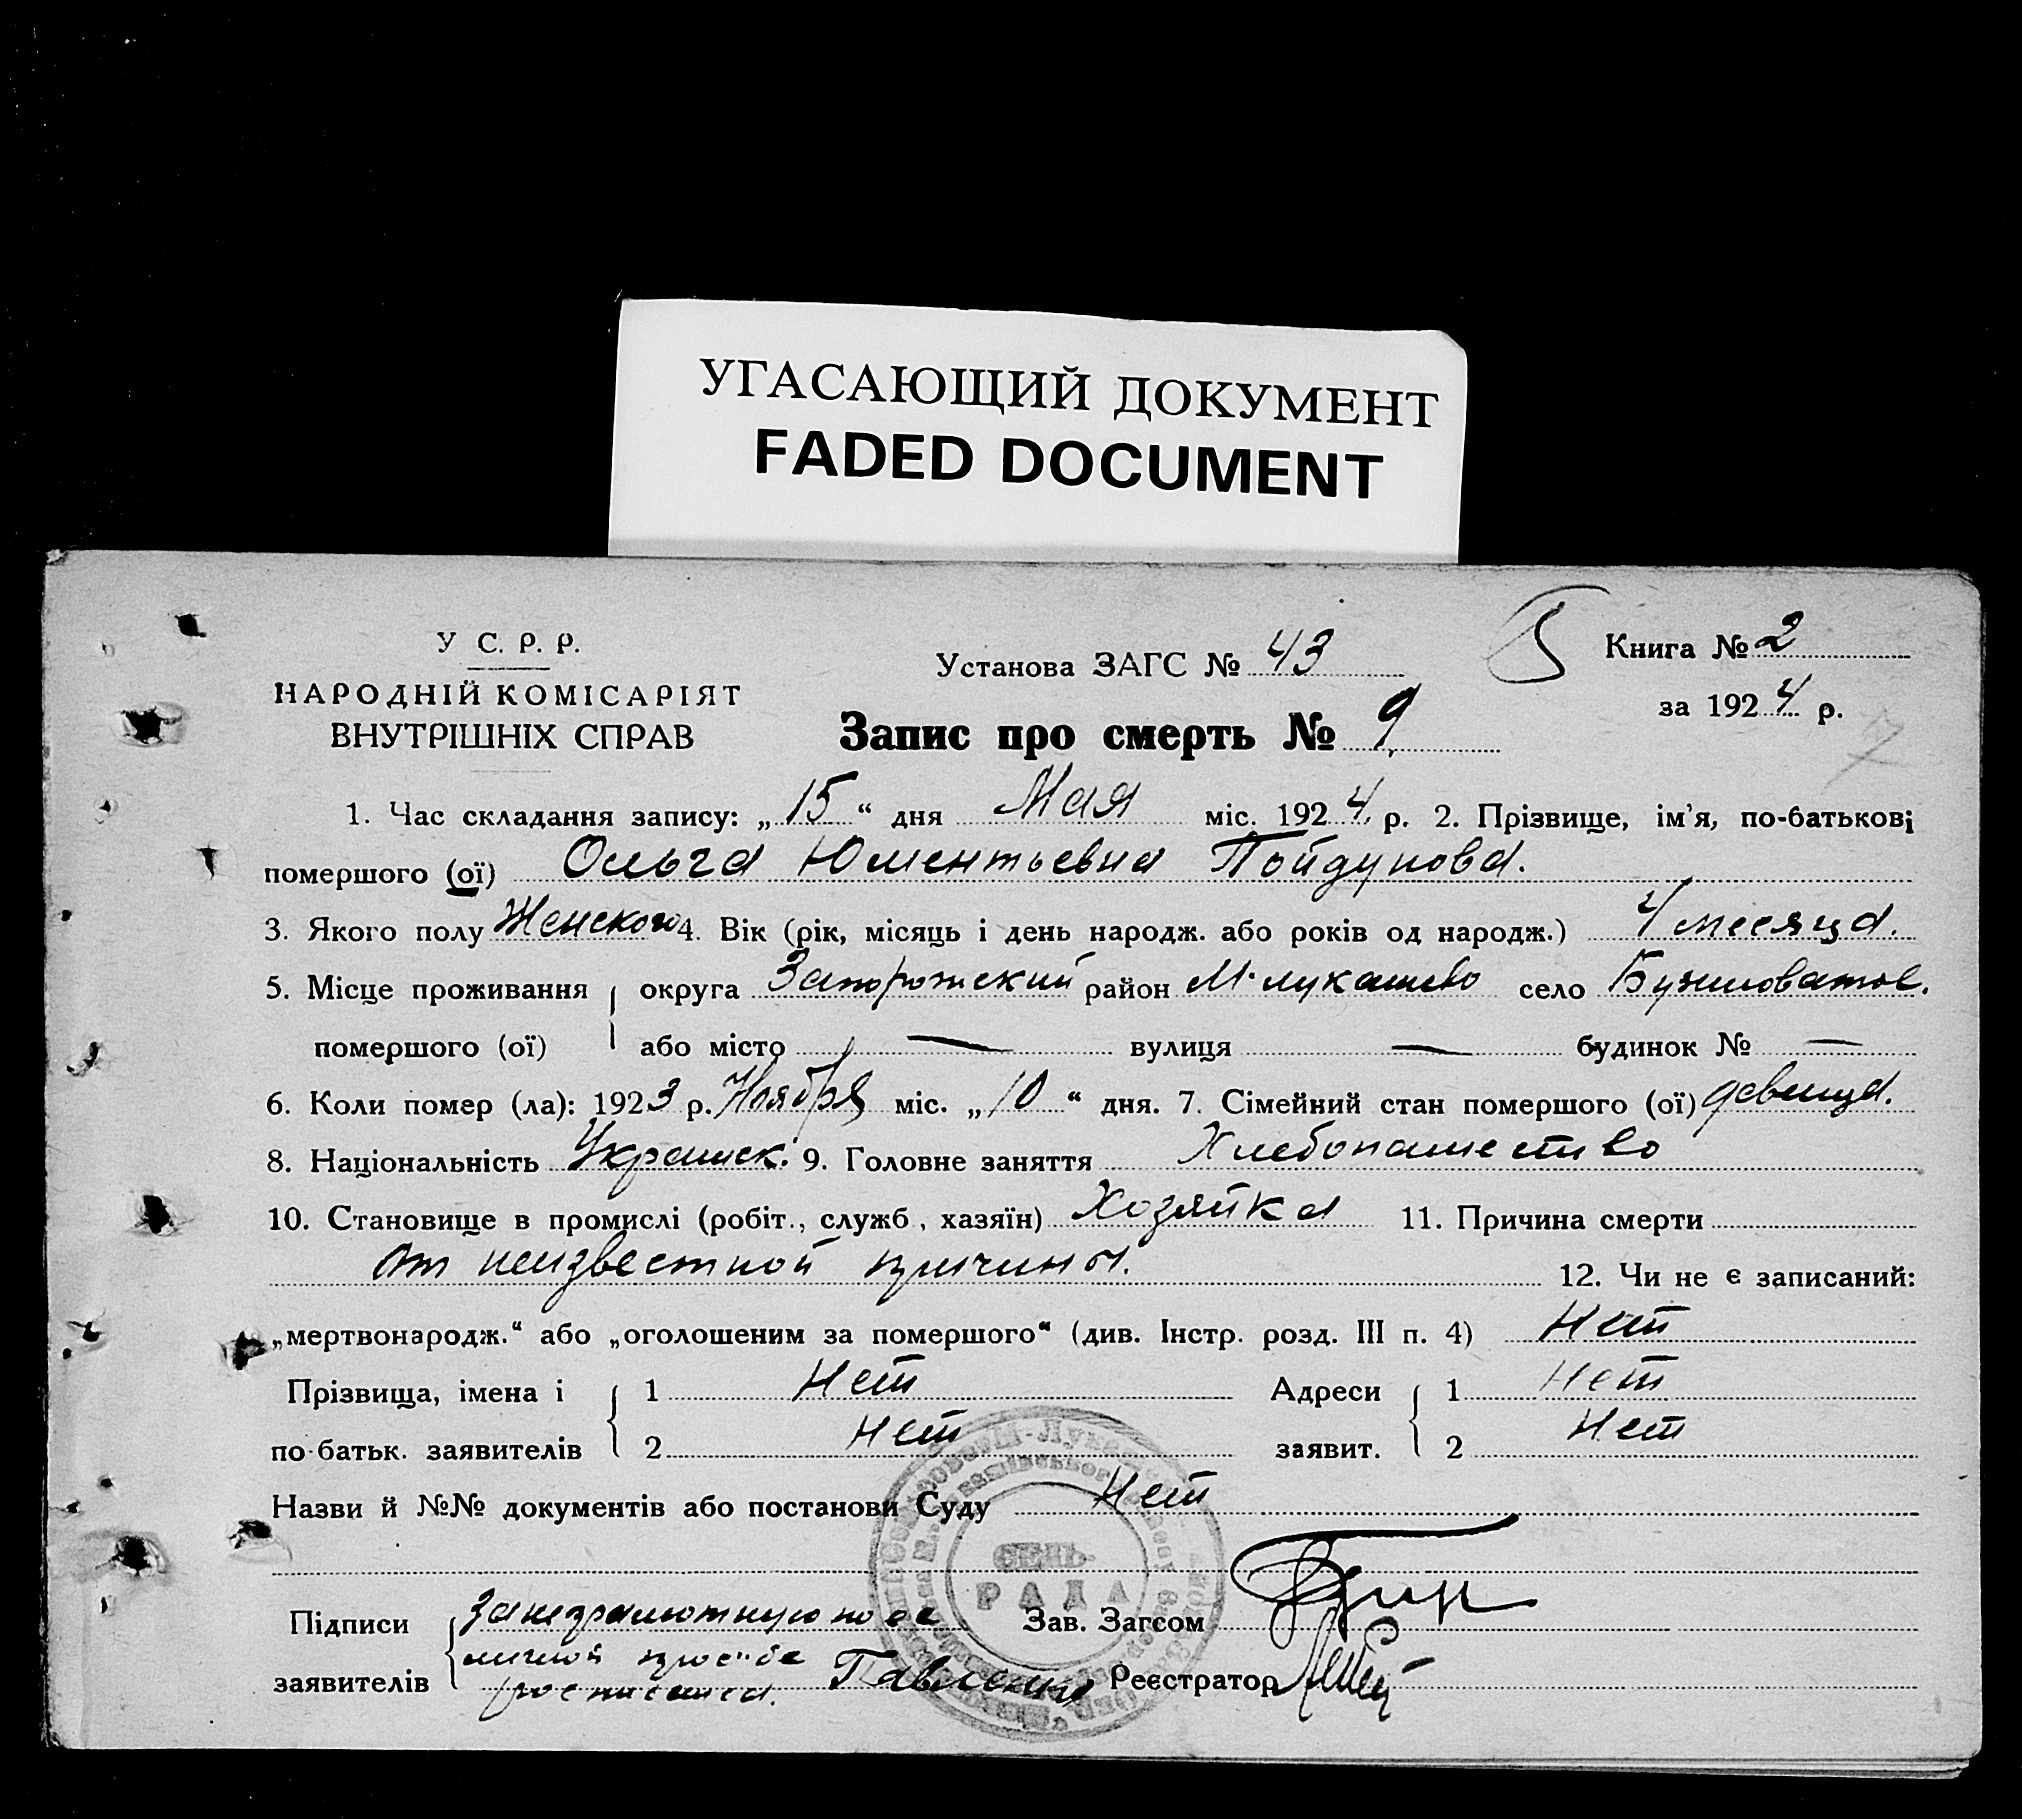 УГАСАЮЩИЙ ДОКУМЕНТ
FADED DOCUMENT
У С. Р. Р.
НАРОДНІЙ КОМІСАРІЯТ
ВНУТРІШНІХ СПРАВ
Установа ЗАГС № 43
Книга № 2
за 1924 р.
Запис про смерть № 9
1. Час складання запису: „15“ дня Мая міс. 1924 р. 2. Прізвище, ім'я, по-батькові
помершого (ої) Ольга Юлентьевна Пойдунова.
3. Якого полу Женского 4. Вік (рік, місяць і день народж. або років од народж.) 4 месяца.
5. Місце проживання округа Запорожский район М-лукашево село Бузиноватое.
помершого (ої) або місто — вулиця — будинок № —
6. Коли помер (ла): 1923 р. Ноября міс. „10“ дня. 7. Сімейний стан помершого (ої) девица.
8. Національність Украинск. 9. Головне заняття Хлебопашество
10. Становище в промислі (робіт., служб., хазяїн) Хозяйка 11. Причина смерти
От неизвестной причины. 12. Чи не є записаний:
„мертвонародж.“ або „оголошеним за помершого“ (див. Інстр. розд. III п. 4) Нет
Прізвища, імена і 1 Нет Адреси 1 Нет
по-батьк. заявителів 2 Нет заявит. 2 Нет
Назви й №№ документів або постанови Суду Нет
СЕЛЬ-
РАДА
Підписи За неграмотную по ее Зав. Загсом
личной просьбе
заявителів росписался. Павленко Реєстратор